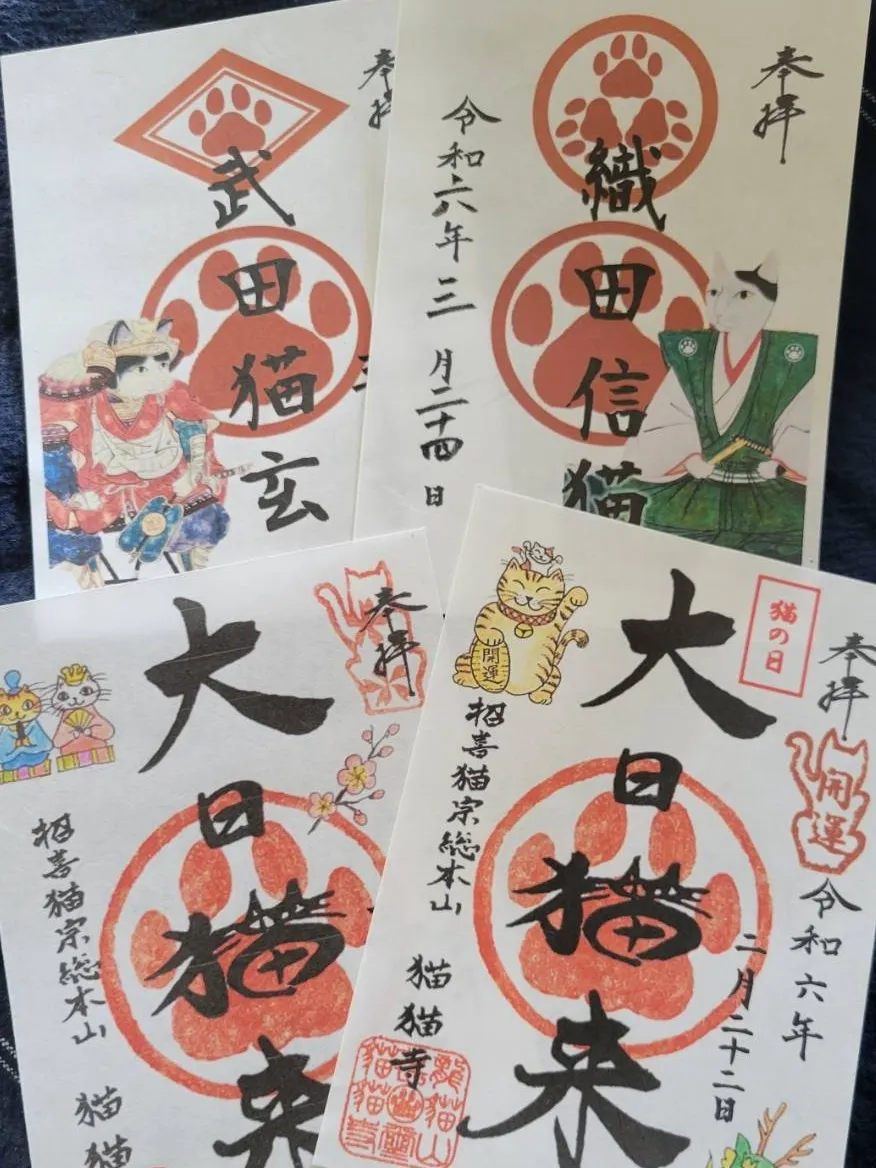 奉拝
武田猫玄
奉拝
織田信猫
令和六年三月二十四日
奉拝
大日猫来
招喜猫宗総本山
猫猫
奉拝
猫の日
開運
令和六年
二月二十二日
大日猫来
開運
招喜猫宗総本山
猫猫寺